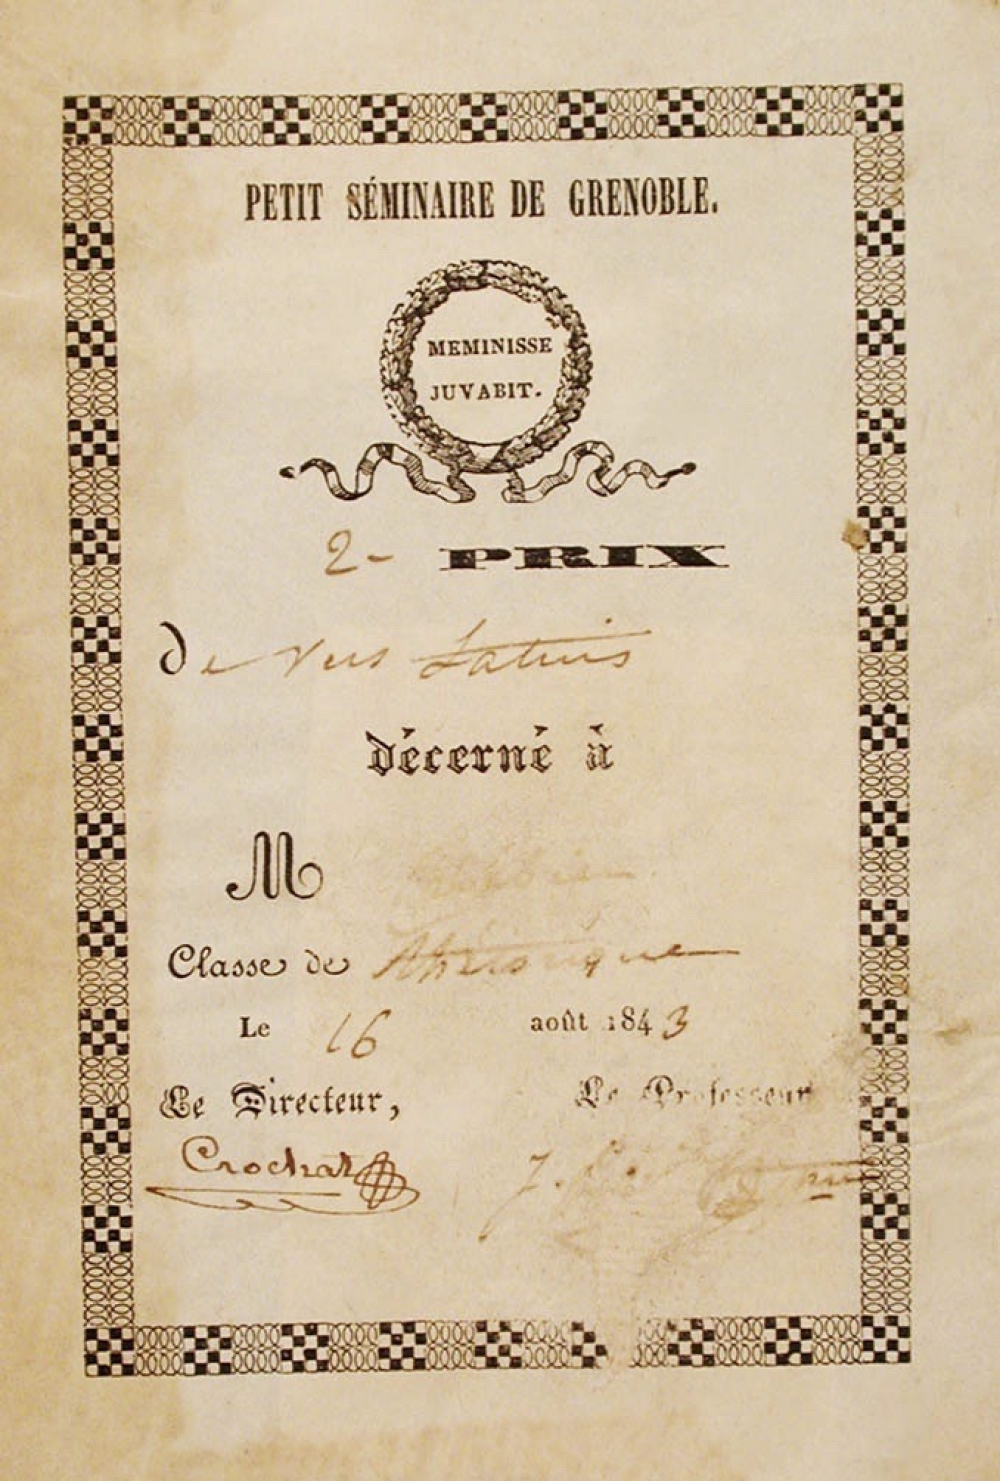 PETIT SÉMINAIRE DE GRENOBLE.
MEMINISSE
JUVABIT.
2- PRIX
De Vers Latins
décerné à
M
Classe de Rhétorique
Le 16 août 1843
Le Directeur, Le Professeur
Crochat J.